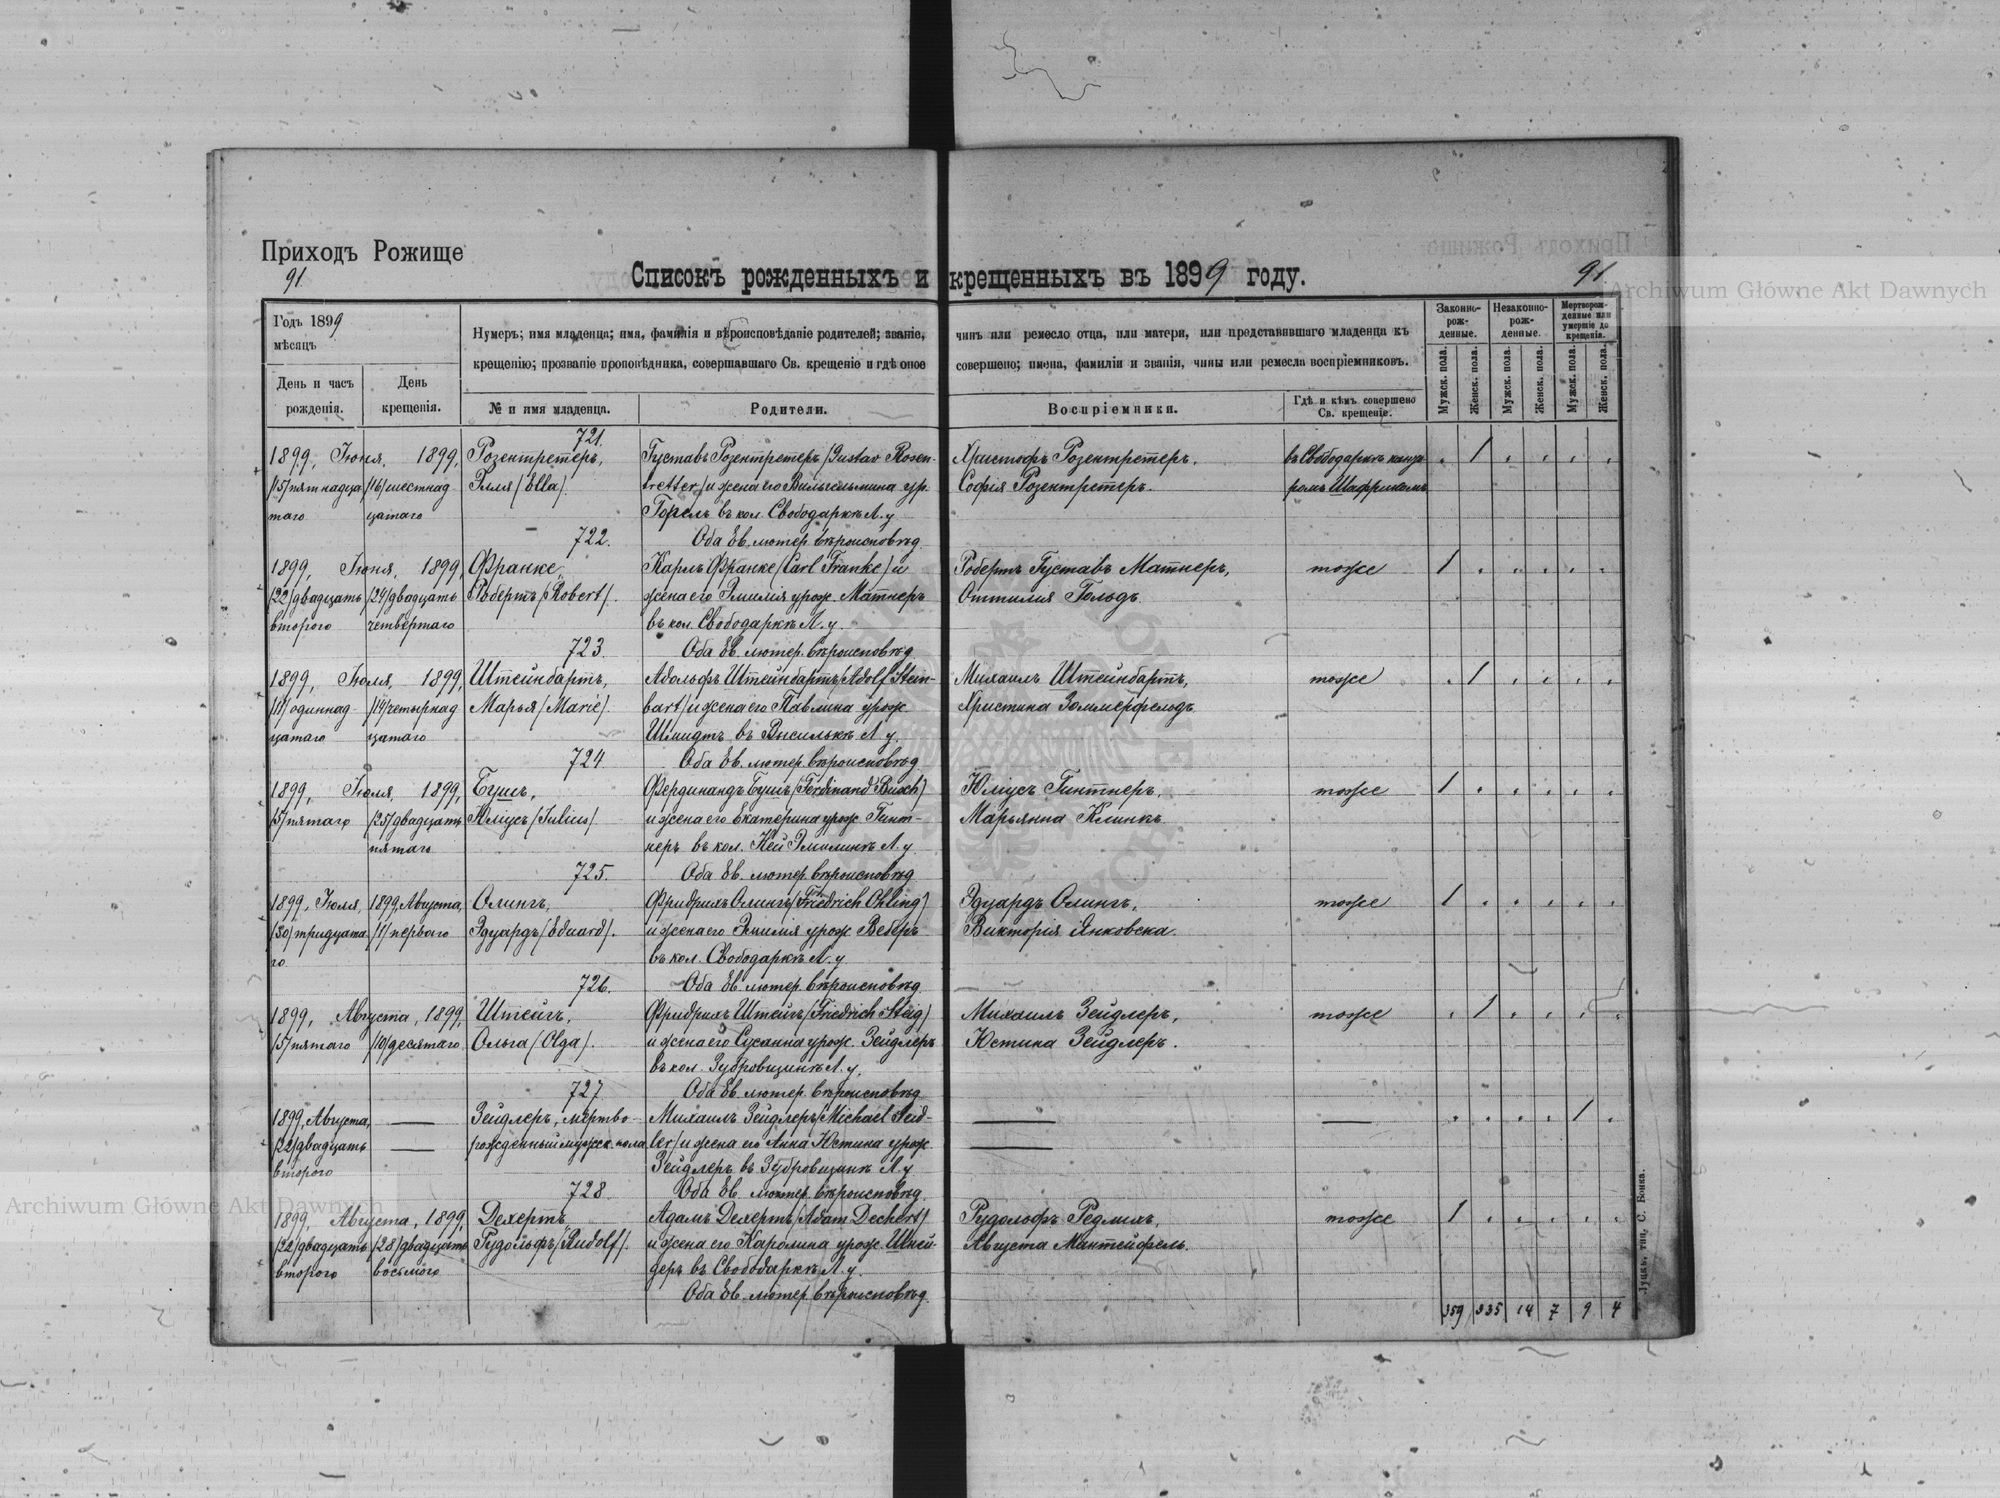 Приходъ Рожище
91.
Списокъ рожденныхъ и крещенныхъ въ 1899 году.
91
Годъ 1899
мѣсяцъ
День и часъ рожденія.
День крещенія.
Нумеръ; имя младенца; имя, фамилія и вѣроисповѣданіе родителей; званіе, чинъ или ремесло отца, или матери, или представившаго младенца къ
крещенію; прозваніе проповѣдника, совершавшаго Св. крещеніе и гдѣ оное совершено; имена, фамиліи и званія, чины или ремесла воспріемниковъ.
№ и имя младенца.
Родители.
Воспріемники.
Гдѣ и кѣмъ совершено Св. крещеніе.
Законно-рож-денные.
Незаконно-рож-денные.
Мертворож-денные или умершіе до крещенія.
Мужск. пола.
Женск. пола.
Мужск. пола.
Женск. пола.
Мужск. пола.
Женск. пола.
721.
1899, Іюня, 1899, Розентретеръ, Густавъ Розентретеръ /Gustav Rosen- Христофъ Розентретеръ, въ Свободаркѣ канто-
/15/ пятнадца /16/ шестнад Элля /Ella/. tretter/ и жена его Вильгельмина ур. Софія Розентретеръ. ромъ Шафрикомъ 1
таго цатаго Горель въ кол. Свободаркѣ Л. у
722. Оба Ев. лютер. вѣроисповѣд.
1899, Іюня, 1899, Франке, Карлъ Франке /Carl Franke/ и Робертъ Густавъ Матнеръ, тоже 1
/22/ двадцать /24/ двадцать Робертъ /Robert/. жена его Эмилія урож. Матнеръ Оттилія Гольдъ.
второго четвертаго въ кол. Свободаркѣ Л. у.
723. Оба Ев. лютер. вѣроисповѣд
1899, Іюля, 1899, Штейнбартъ, Адольфъ Штейнбартъ /Adolf Stein- Михаилъ Штейнбартъ, тоже 1
/11/ одиннад- /14/ четырнад Марья /Marie/. bart/ и жена его Павлина урож. Христина Зоммерфельдъ
цатаго цатаго Шмидтъ въ Висилькѣ Л у.
724 Оба Ев. лютер. вѣроисповѣд.
1899, Іюля, 1899, Бушъ, Фердинандъ Бушъ /Ferdinand Busch/ Юліусъ Гинтнеръ, тоже 1
/5/ пятаго /25/ двадцать Юліусъ /Julius/ и жена его Екатерина урож. Гинт- Марьянна Клинкъ
пятаго неръ въ кол. Ней Эмилинкѣ Л. у
725. Оба Ев. лютер. вѣроисповѣд
1899, Іюля, 1899, Августа, Олингъ, Фридрихъ Олингъ /Friedrich Ohling/ Эдуардъ Олингъ, тоже 1
/30/ тридцата /1/ перваго Эдуардъ /Eduard/. и жена его Эмилія урож Веберъ Викторія Янковска.
го въ кол. Свободаркѣ Л. у
726. Оба Ев. лютер. вѣроисповѣд.
1899, Августа, 1899, Штейгъ, Фридрихъ Штейгъ /Friedrich Steig/ Михаилъ Зейдлеръ, тоже 1
/5/ пятаго /10/ десятаго Ольга /Olga/. и жена его Сусанна урож. Зейдлеръ Юстина Зейдлеръ.
въ кол. Зубровщинѣ Л. у.
727 Оба Ев. лютер. вѣроисповѣд
1899, Августа, — Зейдлеръ, мертво- Михаилъ Зейдлеръ /Michael Seid- — — 1
/22/ двадцать — рожденный мужск. пола ler/ и жена его Анна Юстина урож. —
второго Зейдлеръ въ Зубровщинѣ Л. у
728. Оба Ев. лютер. вѣроисповѣд.
1899, Августа, 1899, Дехертъ, Адамъ Дехертъ /Adam Dechert/ Рудольфъ Редлихъ, тоже 1
/22/ двадцать /28/ двадцать Рудольфъ /Rudolf/. и жена его Каролина урож. Шней- Августа Мантейфель.
второго восьмого деръ въ Свободаркѣ Л. у.
Оба Ев. лютер. вѣроисповѣд.
359 335 14 7 9 4
Луцкъ, тип. С. Бонка.
Archiwum Główne Akt Dawnych
Archiwum Główne Akt Dawnych